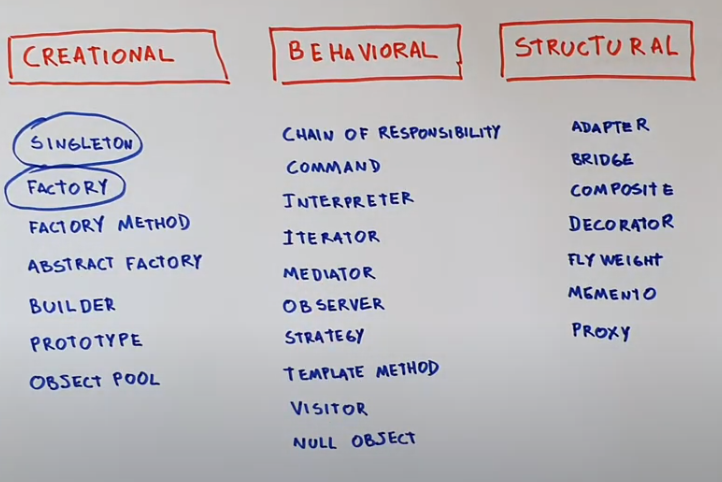 CREATIONAL
SINGLETON
FACTORY
FACTORY METHOD
ABSTRACT FACTORY
BUILDER
PROTOTYPE
OBJECT POOL
BEHAVIORAL
CHAIN OF RESPONSIBILITY
COMMAND
INTERPRETER
ITERATOR
MEDIATOR
OBSERVER
STRATEGY
TEMPLATE METHOD
VISITOR
NULL OBJECT
STRUCTURAL
ADAPTER
BRIDGE
COMPOSITE
DECORATOR
FLY WEIGHT
MEMENTO
PROXY